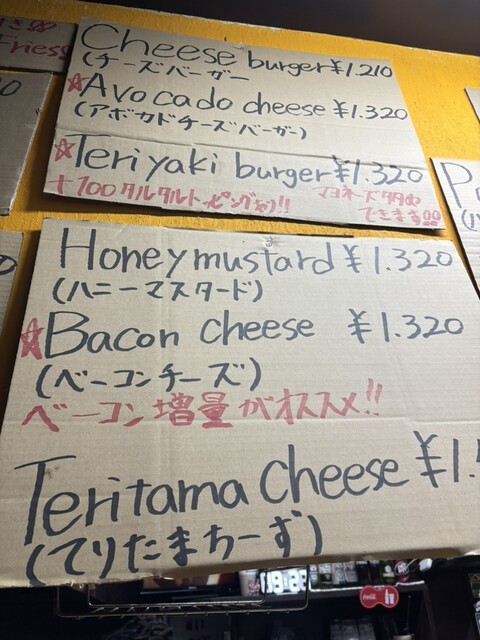 Fries
Cheese burger ¥1.210
(チーズバーガー
☆Avocado cheese ¥1.320
(アボカドチーズバーガー)
☆Teriyaki burger ¥1.320
+100タルタルトッピング有り!!
マヨネーズ多め
できます
Honey mustard ¥1.320
(ハニーマスタード)
☆Bacon cheese ¥1.320
(ベーコンチーズ)
ベーコン増量がオススメ!!
Teritama cheese ¥1.
(てりたまちーず)